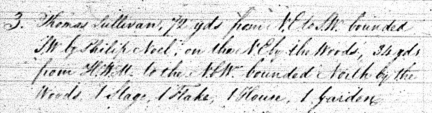 3. Thomas Sullivan, 72 yds from N.E to S.W. bounded
S.W by Philip Noel, on the N.E by the Woods, 34 yds
from H.W.M. to the N.W bounded North by the
Woods, 1 Stage, 1 Flake, 1 House, 1 Garden